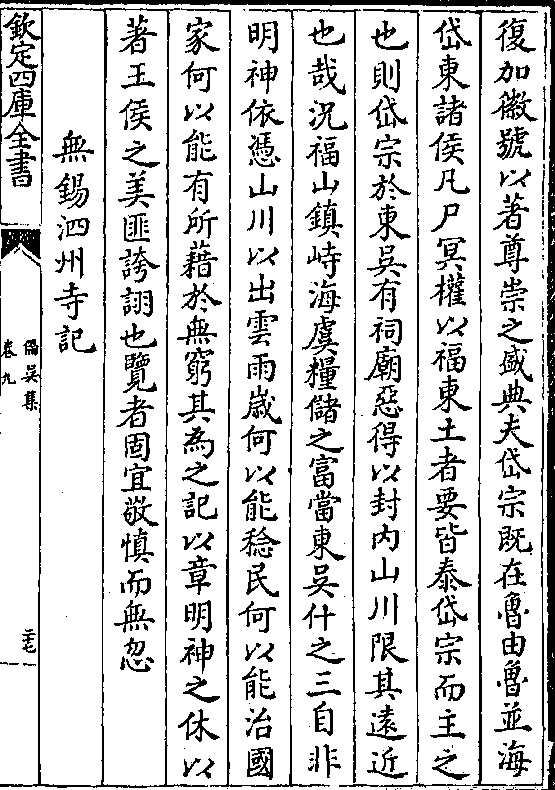 復加徽號以著尊崇之盛典夫岱宗既在魯由魯並海
岱東諸侯凡尸冥權以福東土者要皆泰岱宗而主之
也則岱宗於東吳有祠廟惡得以封内山川限其逺近
也哉況福山鎮峙海虞糧儲之富當東吳什之三自非
明神依憑山川以出雲雨嵗何以能稔民何以能治國
家何以能有所藉於無窮其為之記以章明神之休以
著王侯之美匪誇詡也覽者固宜敬慎而無忽
無錫泗州寺記
欽定四庫全書
僑吳集
卷九
二七